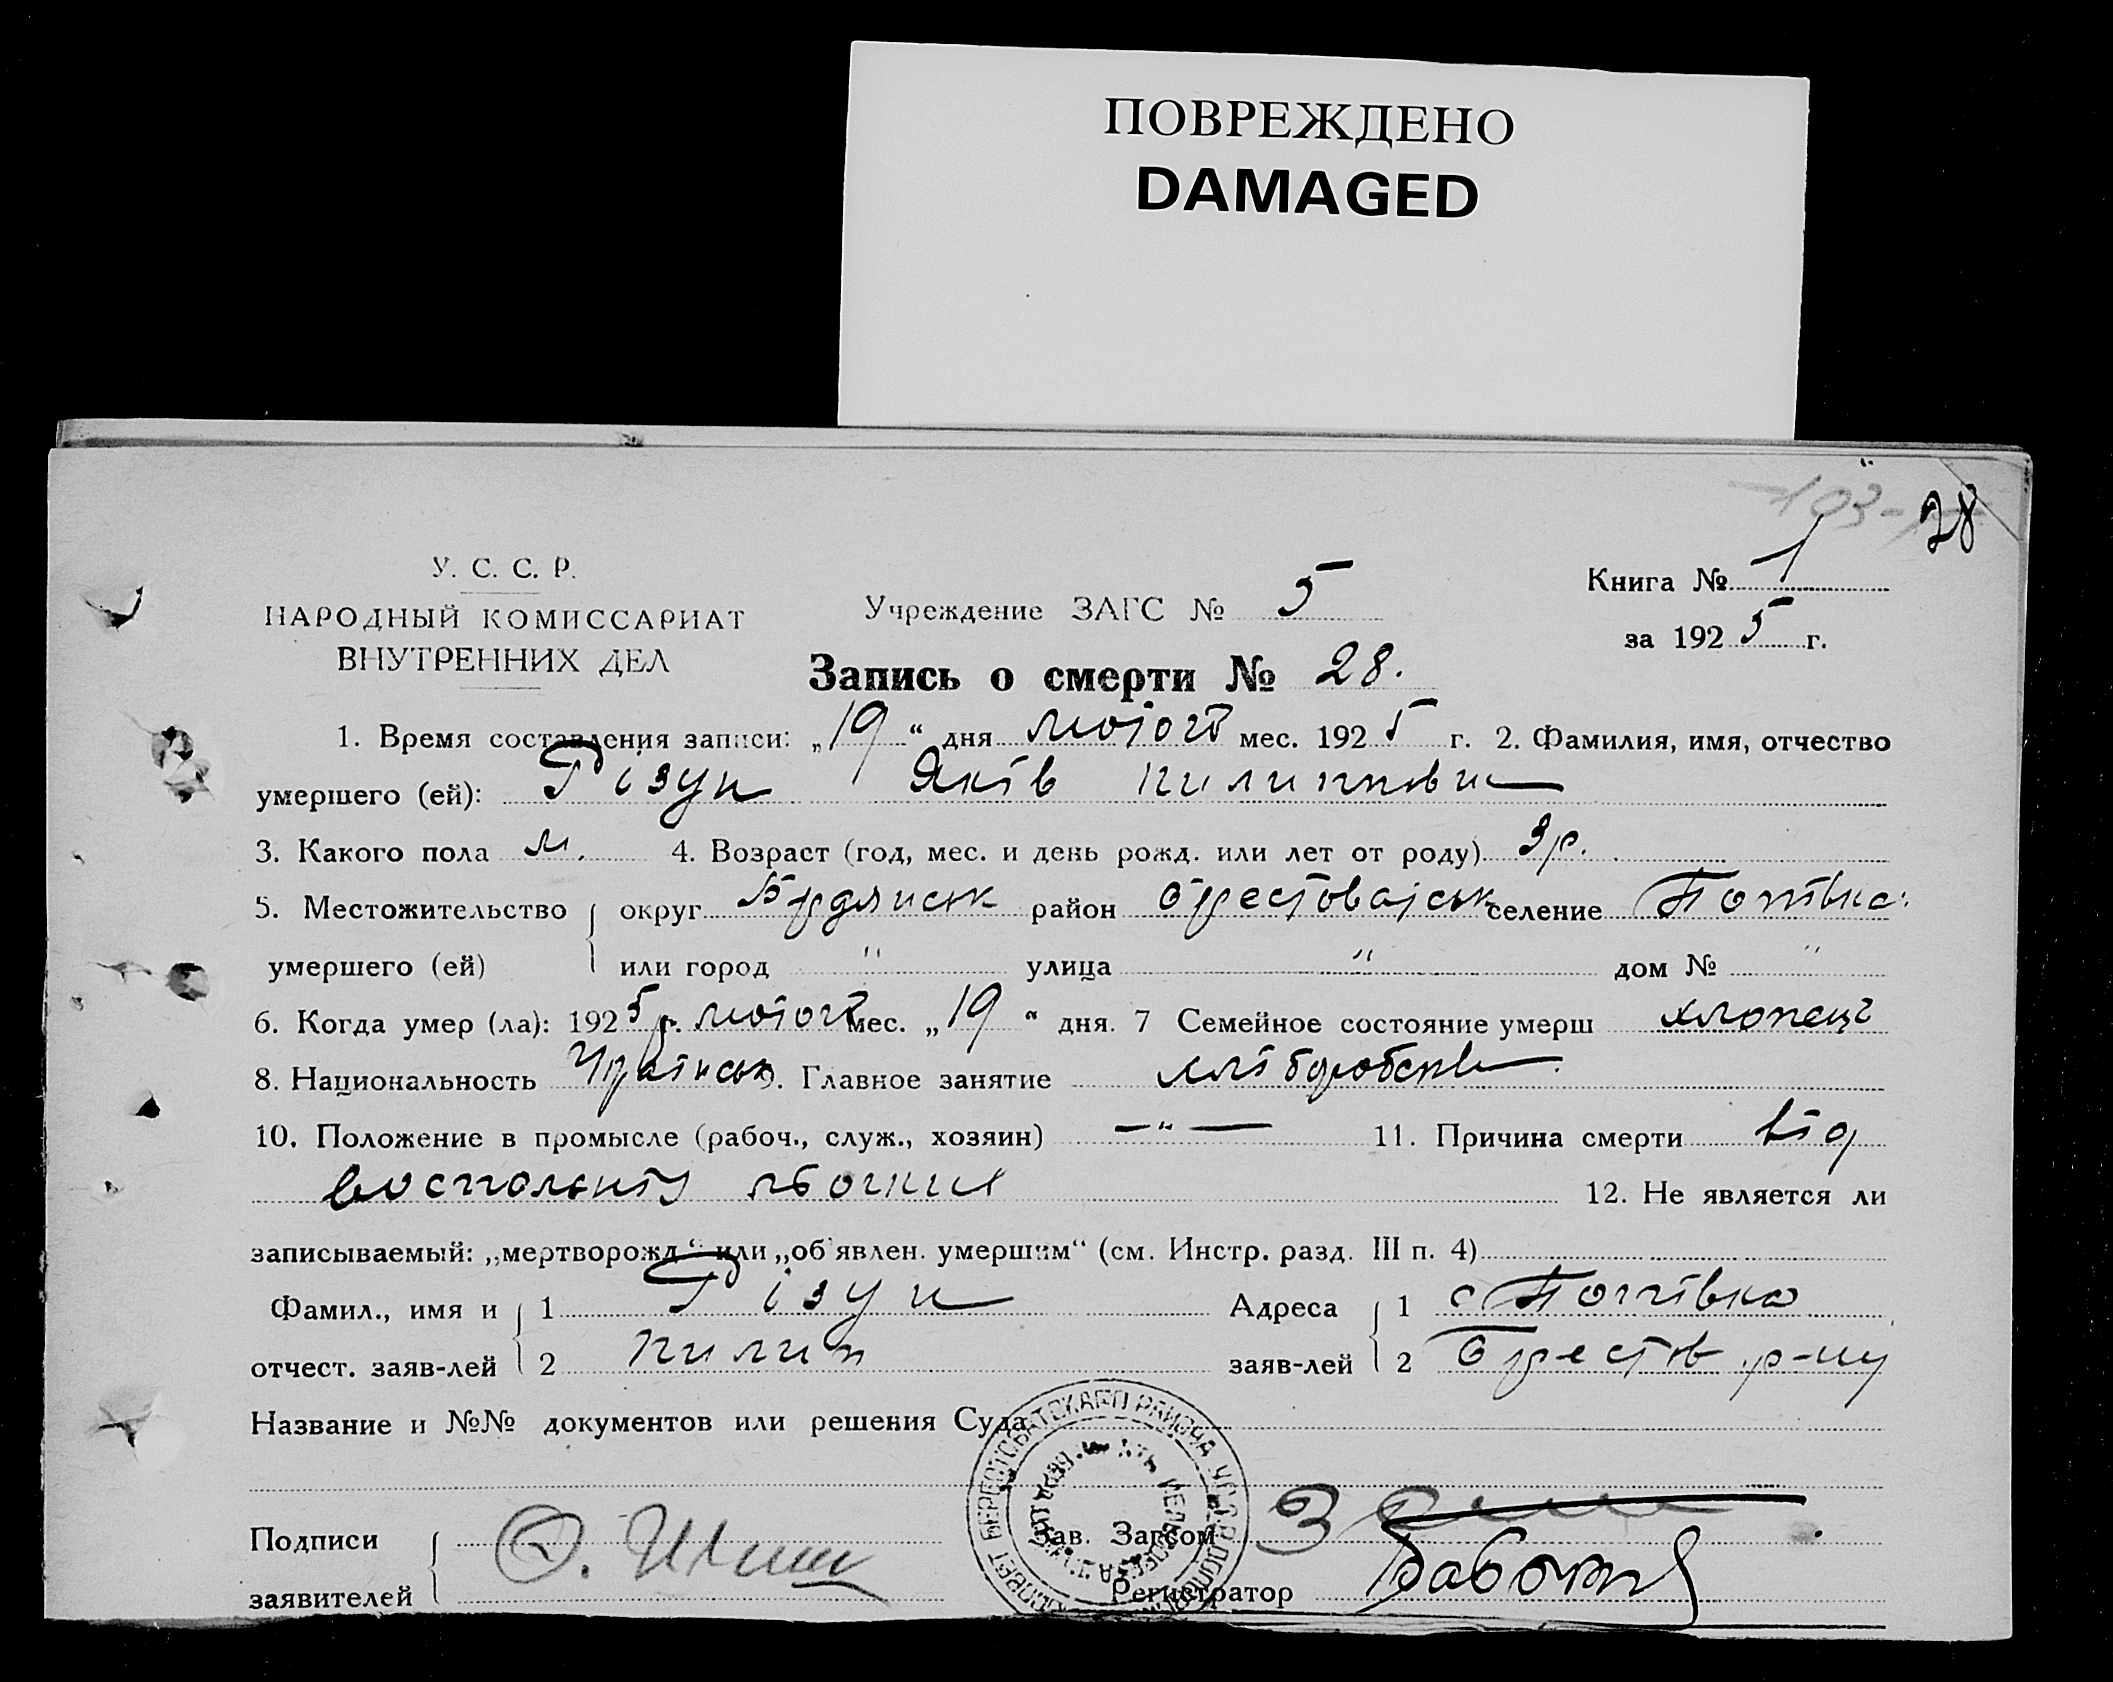 ПОВРЕЖДЕНО
DAMAGED
28
У. С. С. Р.
НАРОДНЫЙ КОМИССАРИАТ
ВНУТРЕННИХ ДЕЛ
Учреждение ЗАГС № 5
Книга № 1
за 1925 г.
Запись о смерти № 28.
1. Время составления записи: „19“ дня лютого мес. 1925 г. 2. Фамилия, имя, отчество
умершего (ей): Різун Яків Пилипович
3. Какого пола м. 4. Возраст (год, мес. и день рожд. или лет от роду) 3 р.
5. Местожительство округ район селение
умершего (ей) или город " улица " дом № "
6. Когда умер (ла): 1925 р. лютого мес. „19“ дня. 7 Семейное состояние умерш хлопець
8. Национальность Україньськ 9. Главное занятие хліборобство
10. Положение в промысле (рабоч., служ., хозяин) —"— 11. Причина смерти від
12. Не является ли
записываемый: „мертворожд.“ или „об'явлен. умершим“ (см. Инстр. разд. III п. 4)
Фамил., имя и 1 Різун Адреса 1 с
отчест. заяв-лей 2 Пилип заяв-лей 2 р-ну
Название и №№ документов или решения Суда
Подписи
Зав. Загсом
заявителей
Регистратор